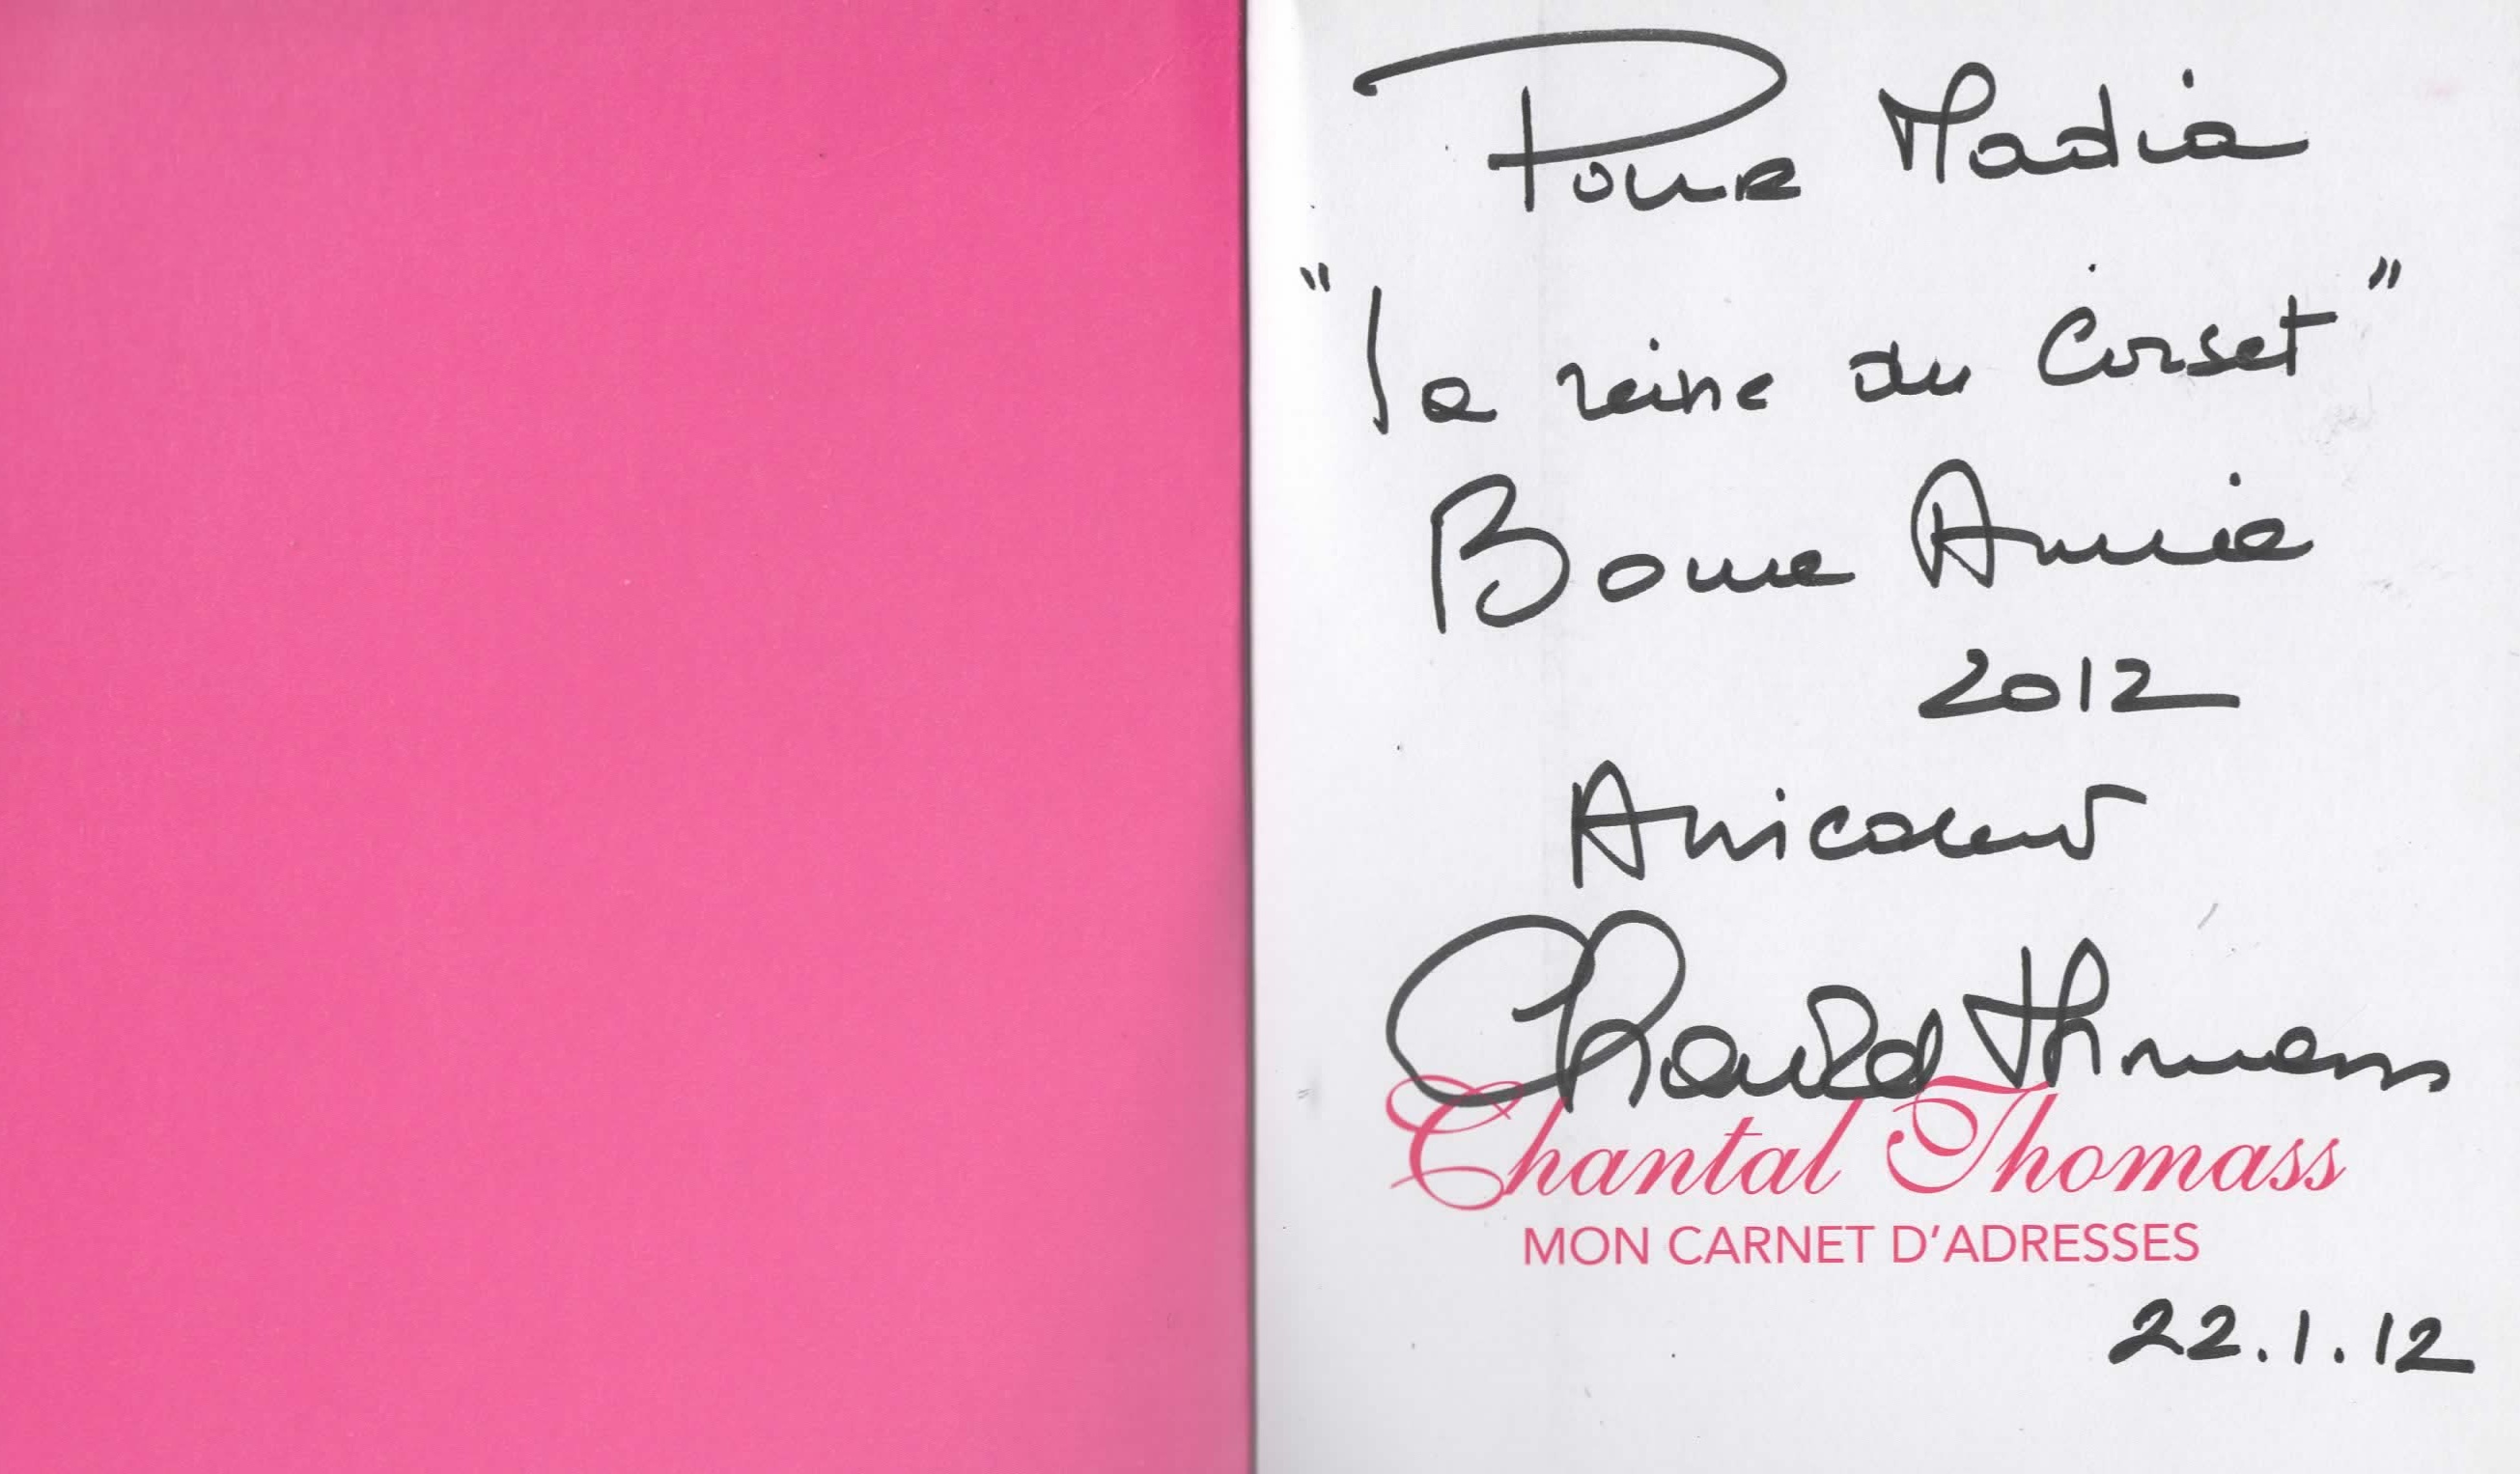 Pour Nadia
"la reine du Corset"
Bonne Année
2012
Amicalement
Chantal Thomass
Chantal Thomass
MON CARNET D'ADRESSES
22.1.12